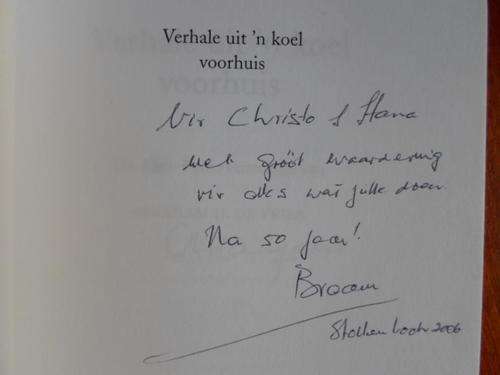 Verhale uit 'n koel
voorhuis
Vir Christo & Hana
met gróót waardering
vir alles wat julle doen.
Na 50 jaar!
Braam
Stellenbosch 2006